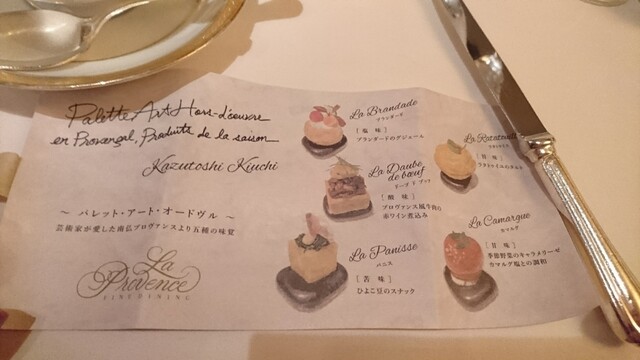 Palette Art Hors-d'œuvre
en Provençal, Produits de la saison
Kazutoshi Kiuchi
～ パレット・アート・オードヴル ～
芸術家が愛した南仏プロヴァンスより五種の味覚
La
Provence
FINE DINING
La Brandade
ブランダード
[ 塩 味 ]
ブランダードのグジェール
La Daube
de bœuf
ドーブ ド ブッフ
[ 酸 味 ]
プロヴァンス風牛肉の
赤ワイン煮込み
La Panisse
パニス
[ 苦 味 ]
ひよこ豆のスナック
La
[ 旨 味 ]
ラタトゥイユのタルト
La Camargue
カマルグ
[ 甘 味 ]
季節野菜のキャラメリーゼ
カマルグ塩との調和